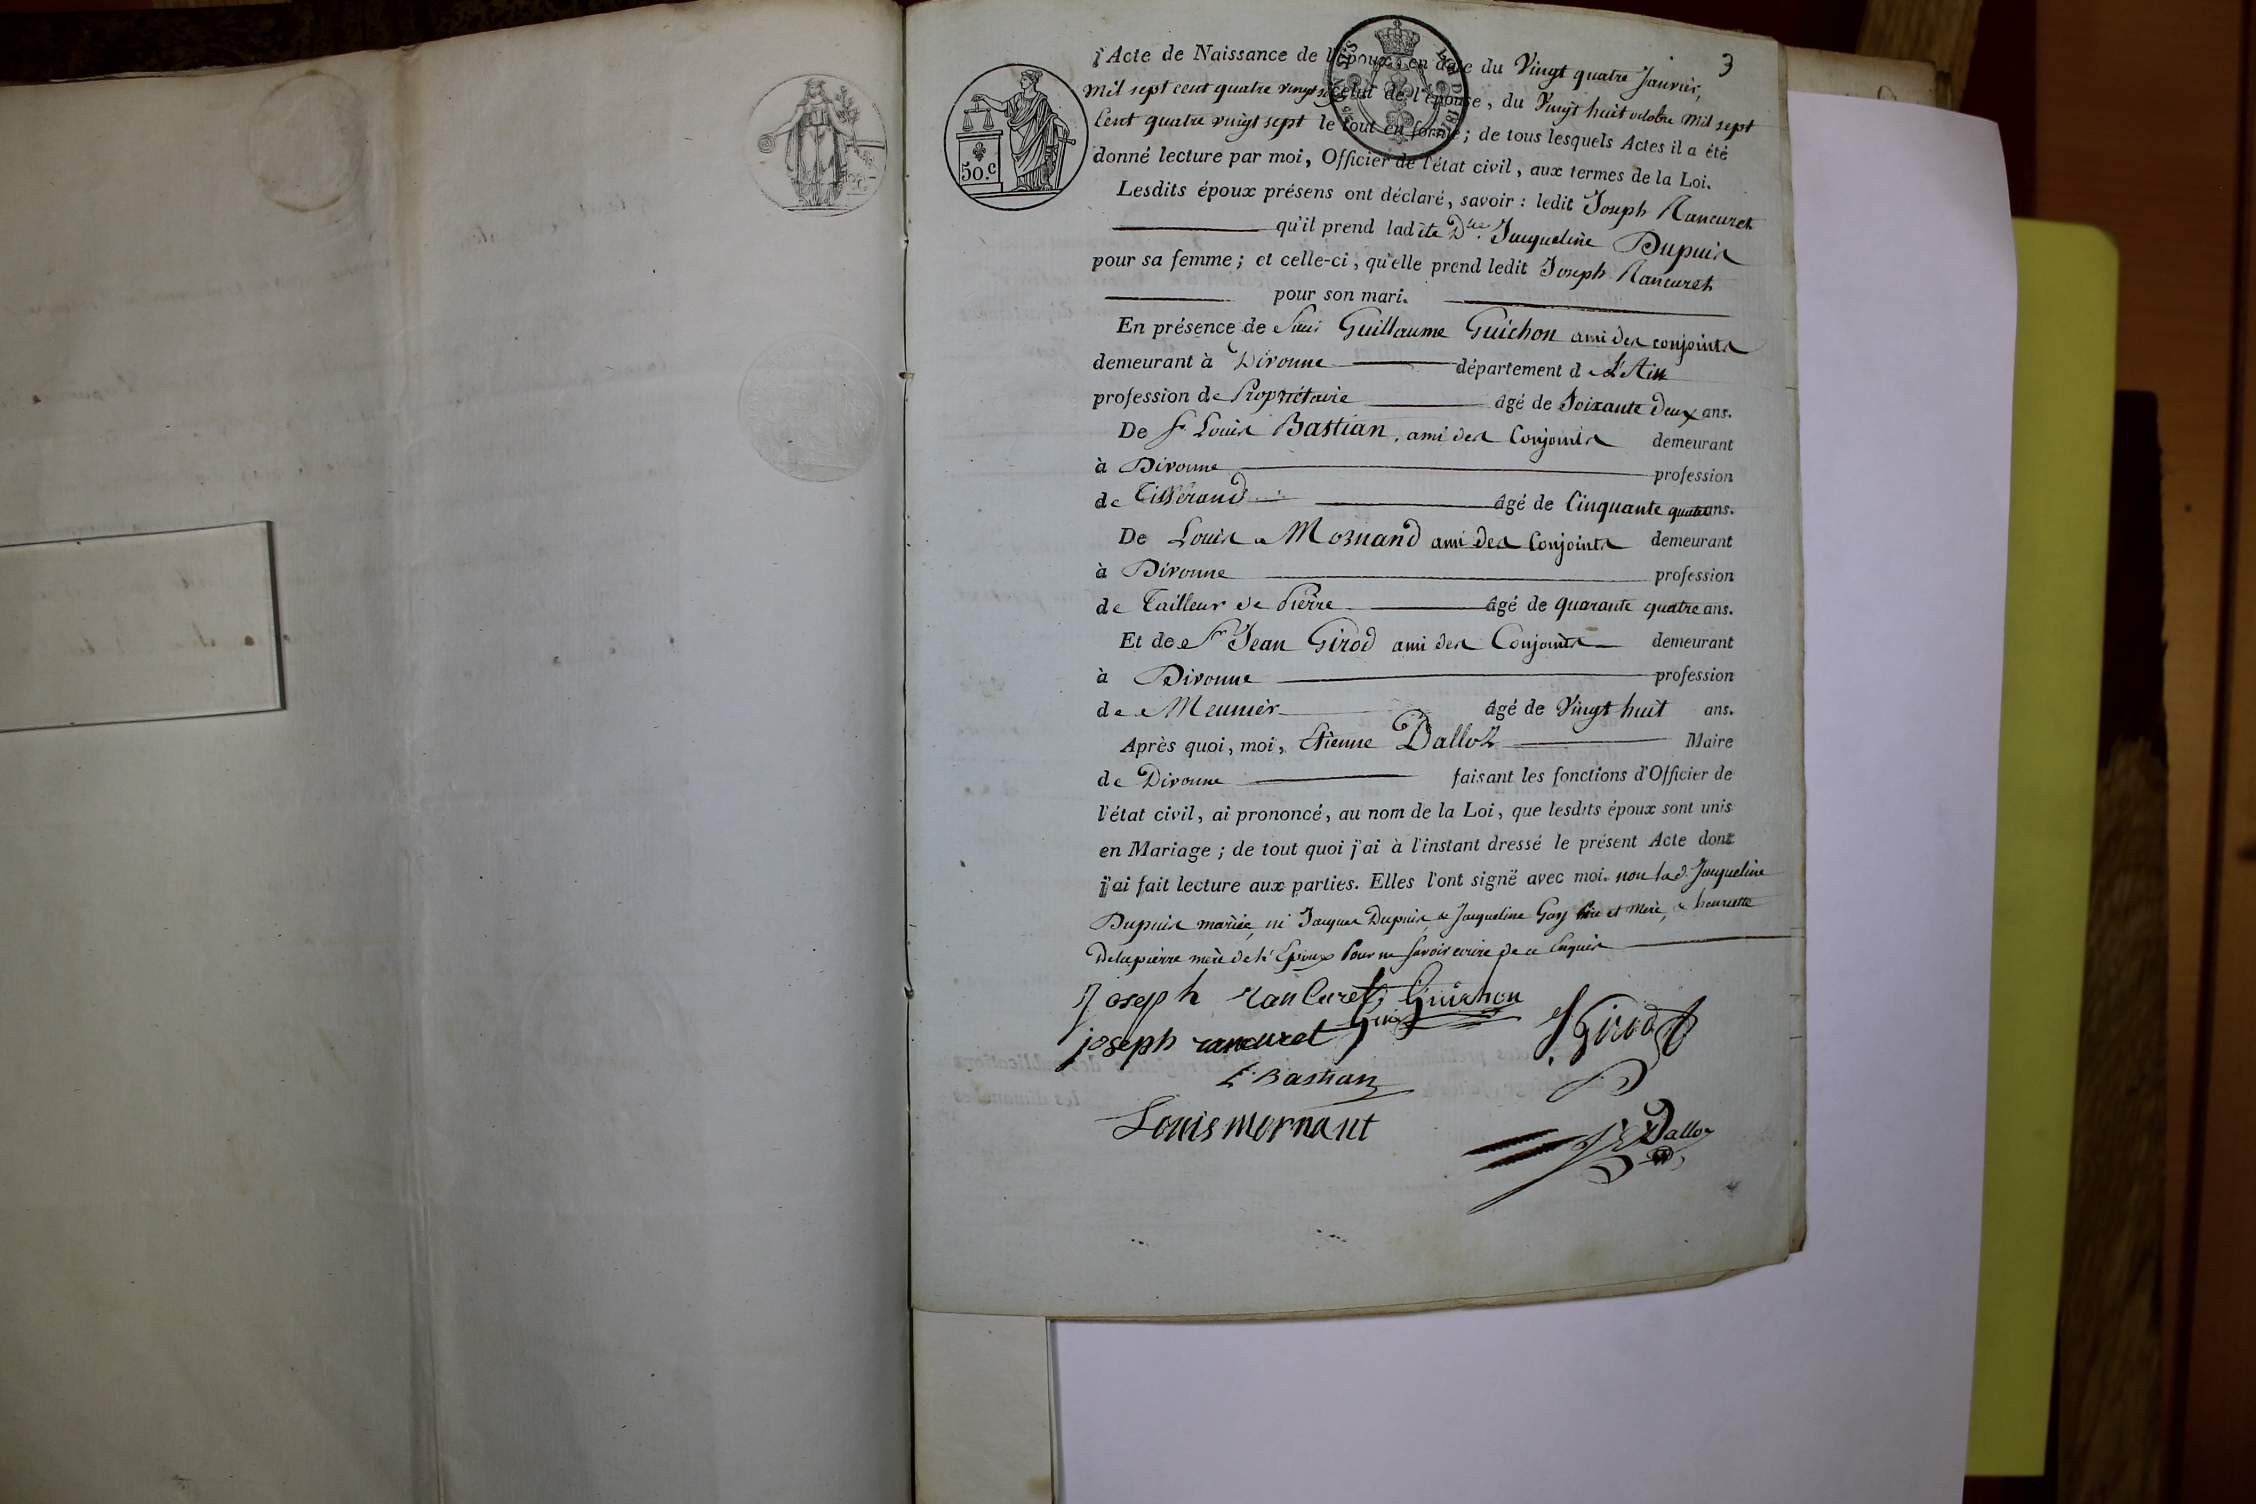 3
l'Acte de Naissance de l'époux, en date du Vingt quatre Janvier,
mil sept cent quatre vingt celui de l'épouse, du Vingt huit octobre mil sept
Cent quatre vingt sept le tout en forme; de tous lesquels Actes il a été
donné lecture par moi, Officier de l'état civil, aux termes de la Loi.
50.c
Lesdits époux présens ont déclaré, savoir : ledit Joseph Rancuret
qu'il prend ladite Dlle Jacqueline Dupuis
pour sa femme; et celle-ci, qu'elle prend ledit Joseph Rancuret
pour son mari.
En présence de Guillaume Guichon ami des conjoints
demeurant à Divonne département d e l'Ain
profession de Propriétaire âgé de Soixante Deux ans.
De Sr Louis Bastian, ami des Conjoints demeurant
à Divonne profession
de Tisserand âgé de Cinquante quatre ans.
De Louis Mornand ami des Conjoints demeurant
à Divonne profession
de Tailleur de Pierre âgé de quarante quatre ans.
Et de Sr Jean Girod ami des Conjoints demeurant
à Divonne profession
de Meunier âgé de Vingt huit ans.
Après quoi, moi, Etienne Dalloz Maire
de Divonne faisant les fonctions d'Officier de
l'état civil, ai prononcé, au nom de la Loi, que lesdits époux sont unis
en Mariage; de tout quoi j'ai à l'instant dressé le présent Acte dont
j'ai fait lecture aux parties. Elles l'ont signé avec moi. non lad. Jacqueline
Dupuis mariée, ni Jacques Dupuis, & Jacqueline Gay Père et Mère, & henriette
Delapierre mère de l'Epoux Pour ne savoir ecrire de ce Enquis
Joseph ranCuret Guichon
joseph rancuret
J Girod
L. Bastian
Louis mornant
Dalloz